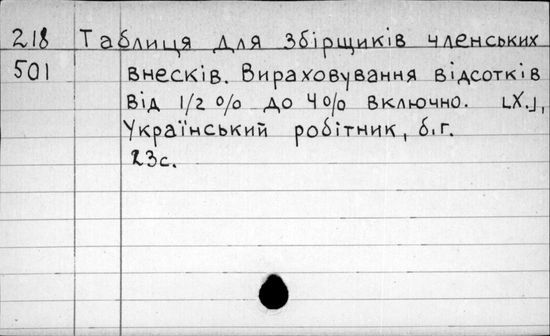 218 Таблиця для збірщиків членських
501 внесків. Вираховування відсотків
від 1/2 % до 4% включно. [Х.],
Український робітник, б.г.
23с.